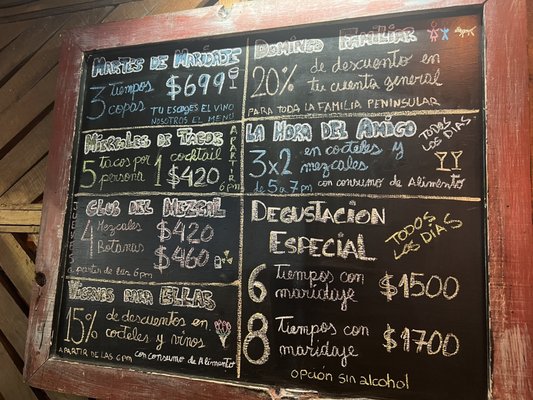 Martes de Maridaje
3 Tiempos $699
copas Tu escoges el vino
nosotros el menú
Miércoles de Tacos
5 tacos por 1 cocktail
persona $420
A PARTIR 6pm
Club del Mezcal
JUEVES
4 Mezcales $420
Botanas $460
a partir de las 6pm
Viernes para Ellas
15% de descuentos en
cocteles y vinos
A PARTIR DE LAS 6PM con consumo de Alimento
Domingo Familiar
20% de descuento en
tu cuenta general
PARA TODA LA FAMILIA PENINSULAR
La Hora del Amigo
TODOS LOS DIAS
3x2 en cocteles y
mezcales
de 5 a 7pm con consumo de Alimento
Degustación
Especial
TODOS
LOS DÍAS
6 Tiempos con $1500
maridaje
8 Tiempos con $1700
maridaje
opción sin alcohol